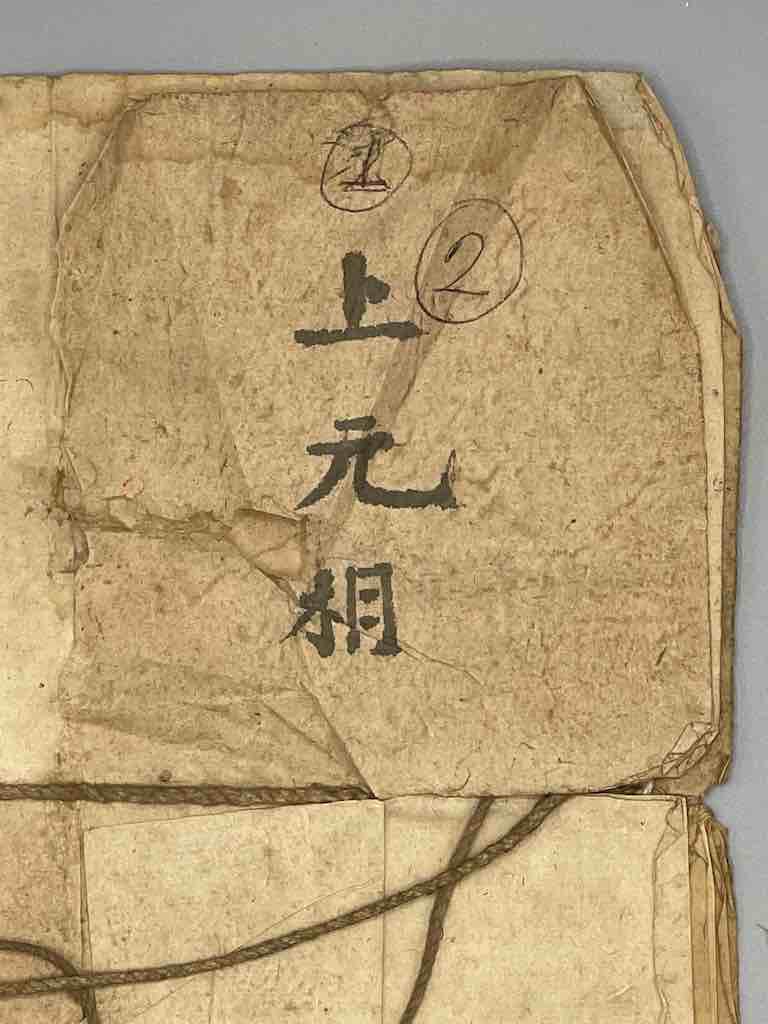 1
2
上元相